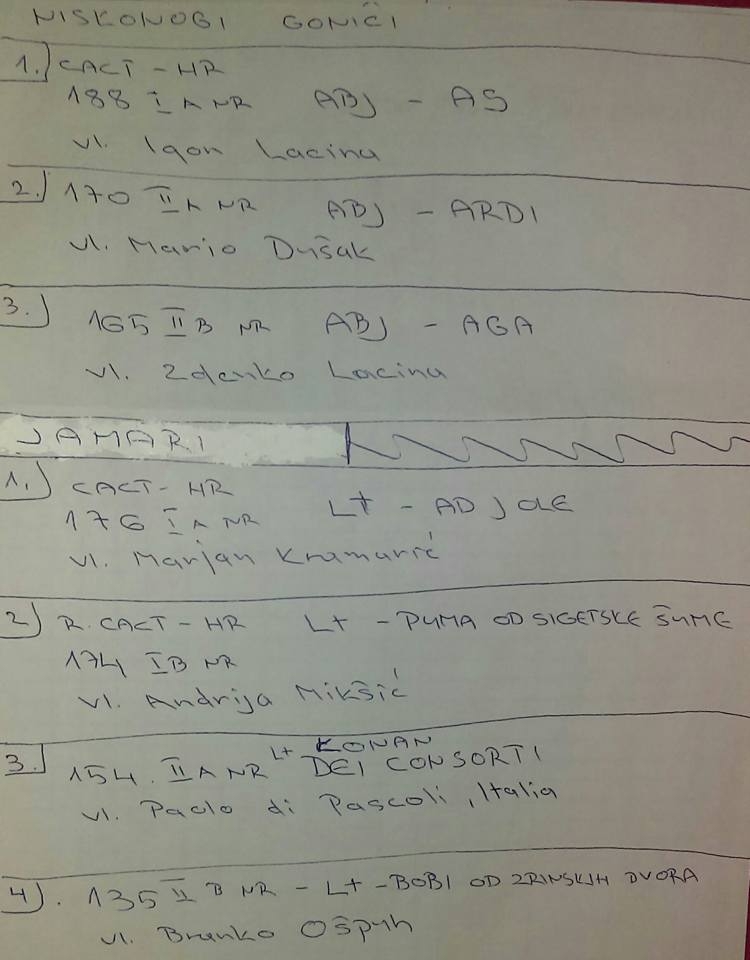 NISKONOGI GONIČI
1.) CACT - HR
188 I A NR ABJ - AS
vl. Igor Lacina
2.) 170 II A NR ABJ - ARDI
vl. Mario Dušak
3.) 165 II B NR ABJ - AGA
vl. Zdenko Lacina
JAMARI
1.) CACT - HR
176 I A NR LT - AD JOLE
vl. Marjan Kramarić
2) R. CACT - HR LT - PUMA OD SIGETSKE ŠUME
174 I B NR
vl. Andrija Mikšić
3.) 154. II A NR LT KONAN
DEI CONSORTI
vl. Paolo di Pascoli, Italia
4). 135 II B NR - LT - BOBI OD ZRINSKIH DVORA
vl. Branko Ošpuh